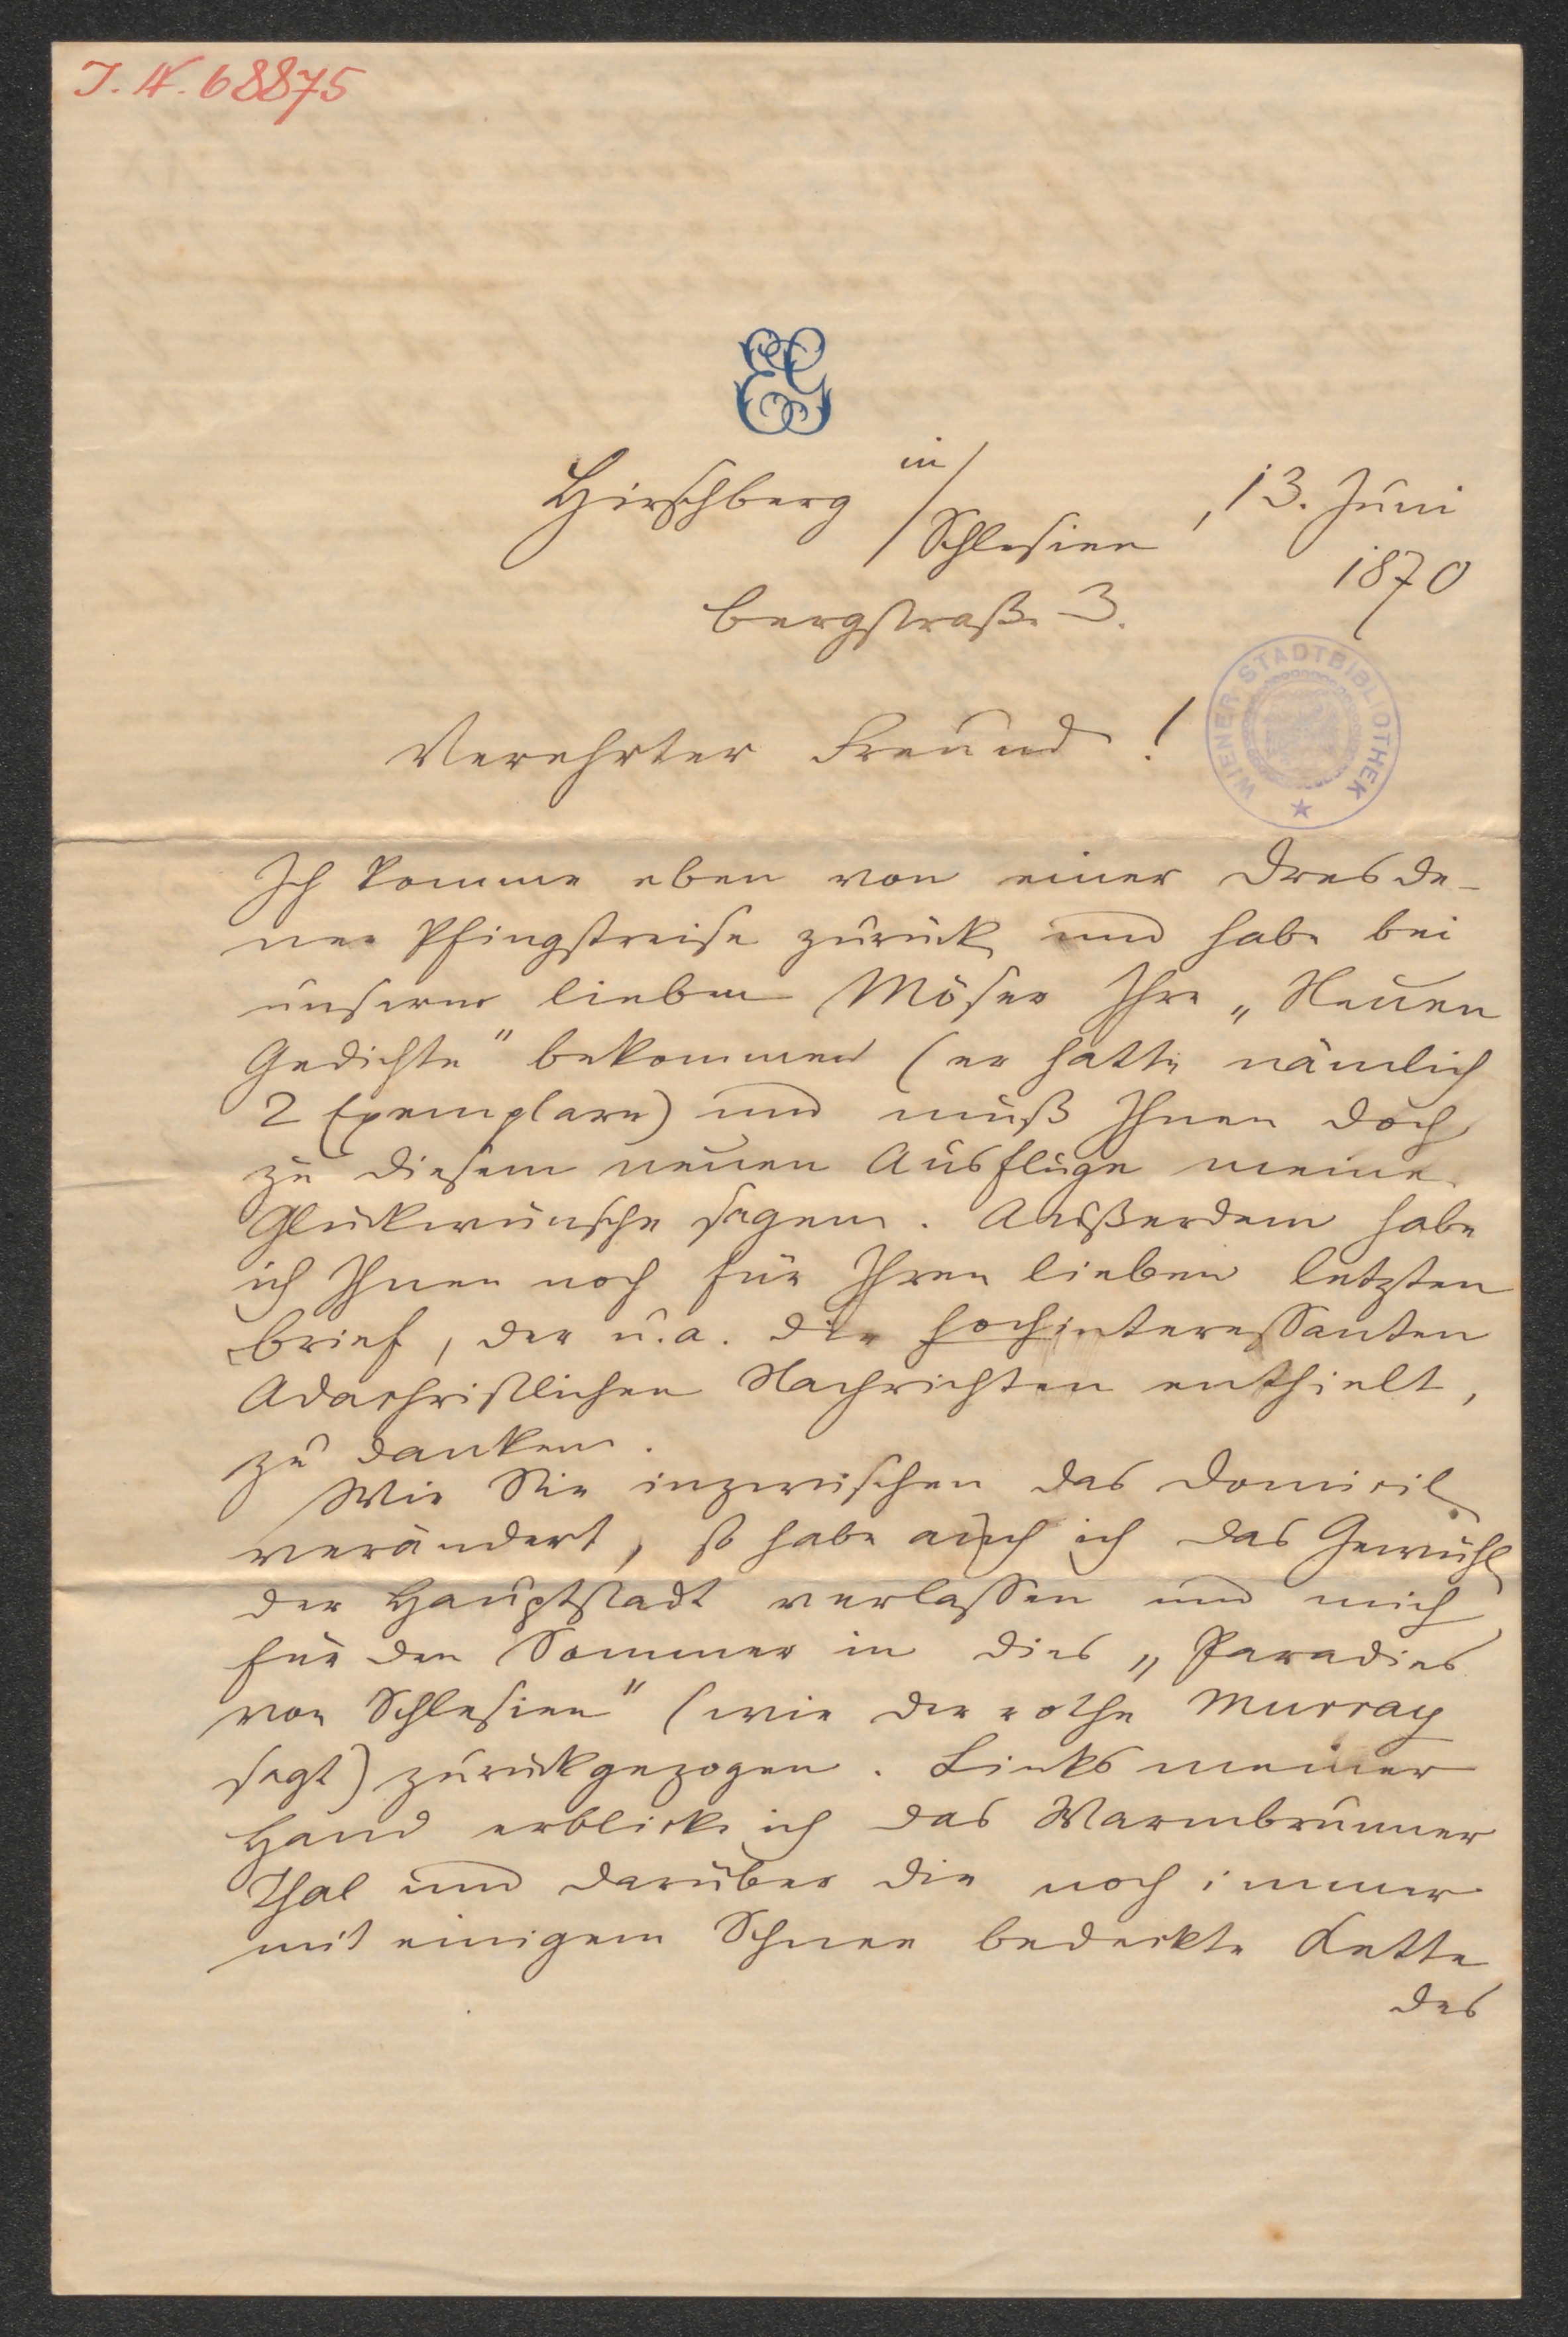 I. N. 68875
EG
Hirschberg in/
/Schlesien, 13. Juni
1870
Bergstraße 3.
WIENER STADTBIBLIOTHEK
Verehrter Freund!
Ich komme eben von einer Dresde-
ner Pfingstreise zurück und habe bei
unserem lieben Möser Ihre „Neuen
Gedichte" bekommen (er hatte nämlich
2 Exemplare) und muß Ihnen doch
zu diesem neuen Ausfluge meine
Glückwünsche sagen. Außerdem habe
ich Ihnen noch für Ihren lieben letzten
Brief, der u. a. die hochinteressanten
Adachristlichen Nachrichten enthielt,
zu danken.
Wie Sie inzwischen das Domicil
verändert, so habe auch ich das Gewühl
der Hauptstadt verlassen und mich
für den Sommer in dies „Paradies
von Schlesien" (wie der rothe Murray
sagt) zurückgezogen. Links meiner
Hand erblicke ich das Warmbrunner
Thal und darüber die noch immer
mit einigem Schnee bedeckte Kette
des